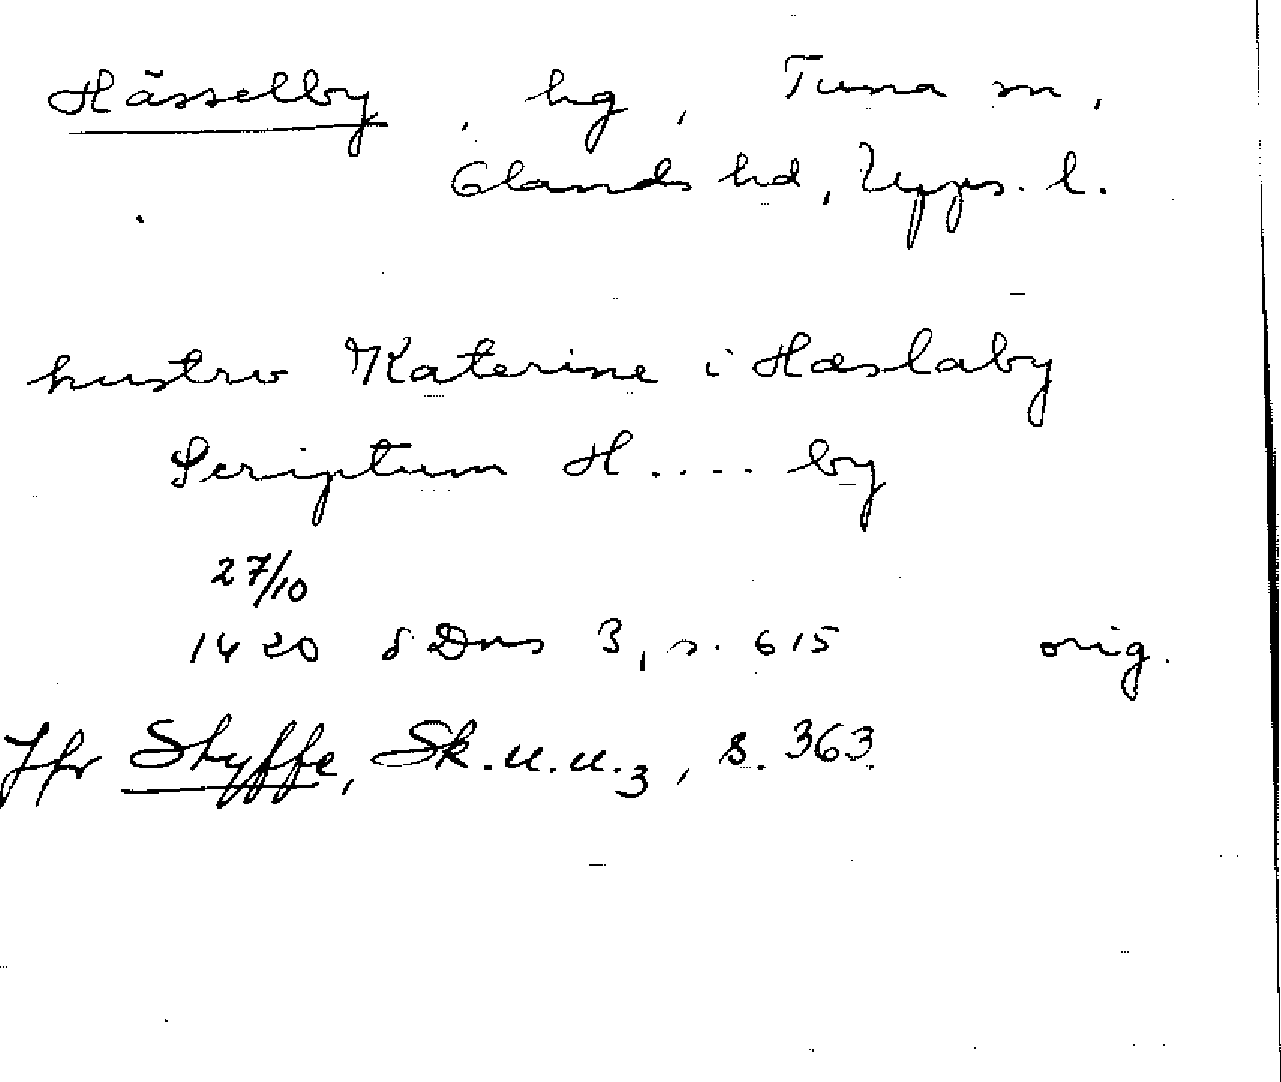 Hässelby, hg, Tuna sn,
Olands hd, Upps. l.
hustrv Katerine i Hæslaby
Scriptum H.... by
27/10
1420 SDns 3, s. 615 orig.
Jfr Styffe, Sk.u.u.3, s. 363.